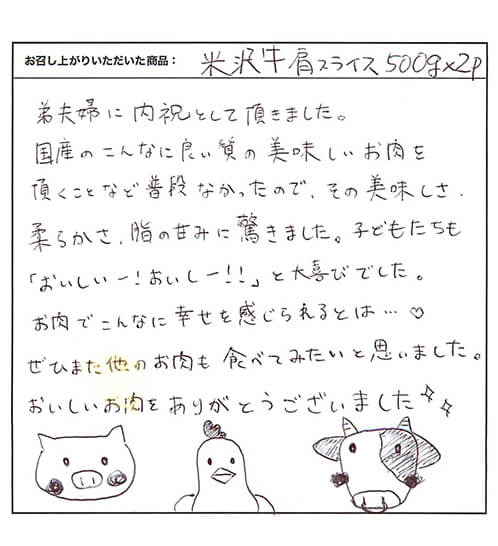 お召し上がりいただいた商品： 米沢牛肩スライス500g×2P
弟夫婦に内祝として頂きました。
国産のこんなに良い質の美味しいお肉を
頂くことなど普段なかったので、その美味しさ、
柔らかさ、脂の甘みに驚きました。子どもたちも
「おいしいー！おいしー！！」と大喜びでした。
お肉でこんなに幸せを感じられるとは…♡
ぜひまた他のお肉も食べてみたいと思いました。
おいしいお肉をありがとうございました